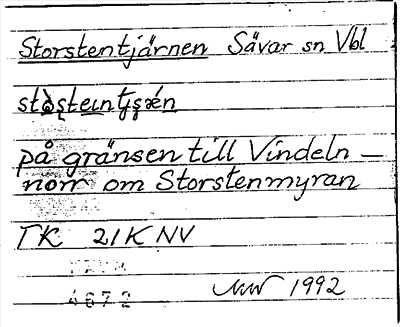 Storstentjärnen Sävar sn Vbl
på gränsen till Vindeln –
norr om Storstenmyran
TK 21K NV
4672 1992